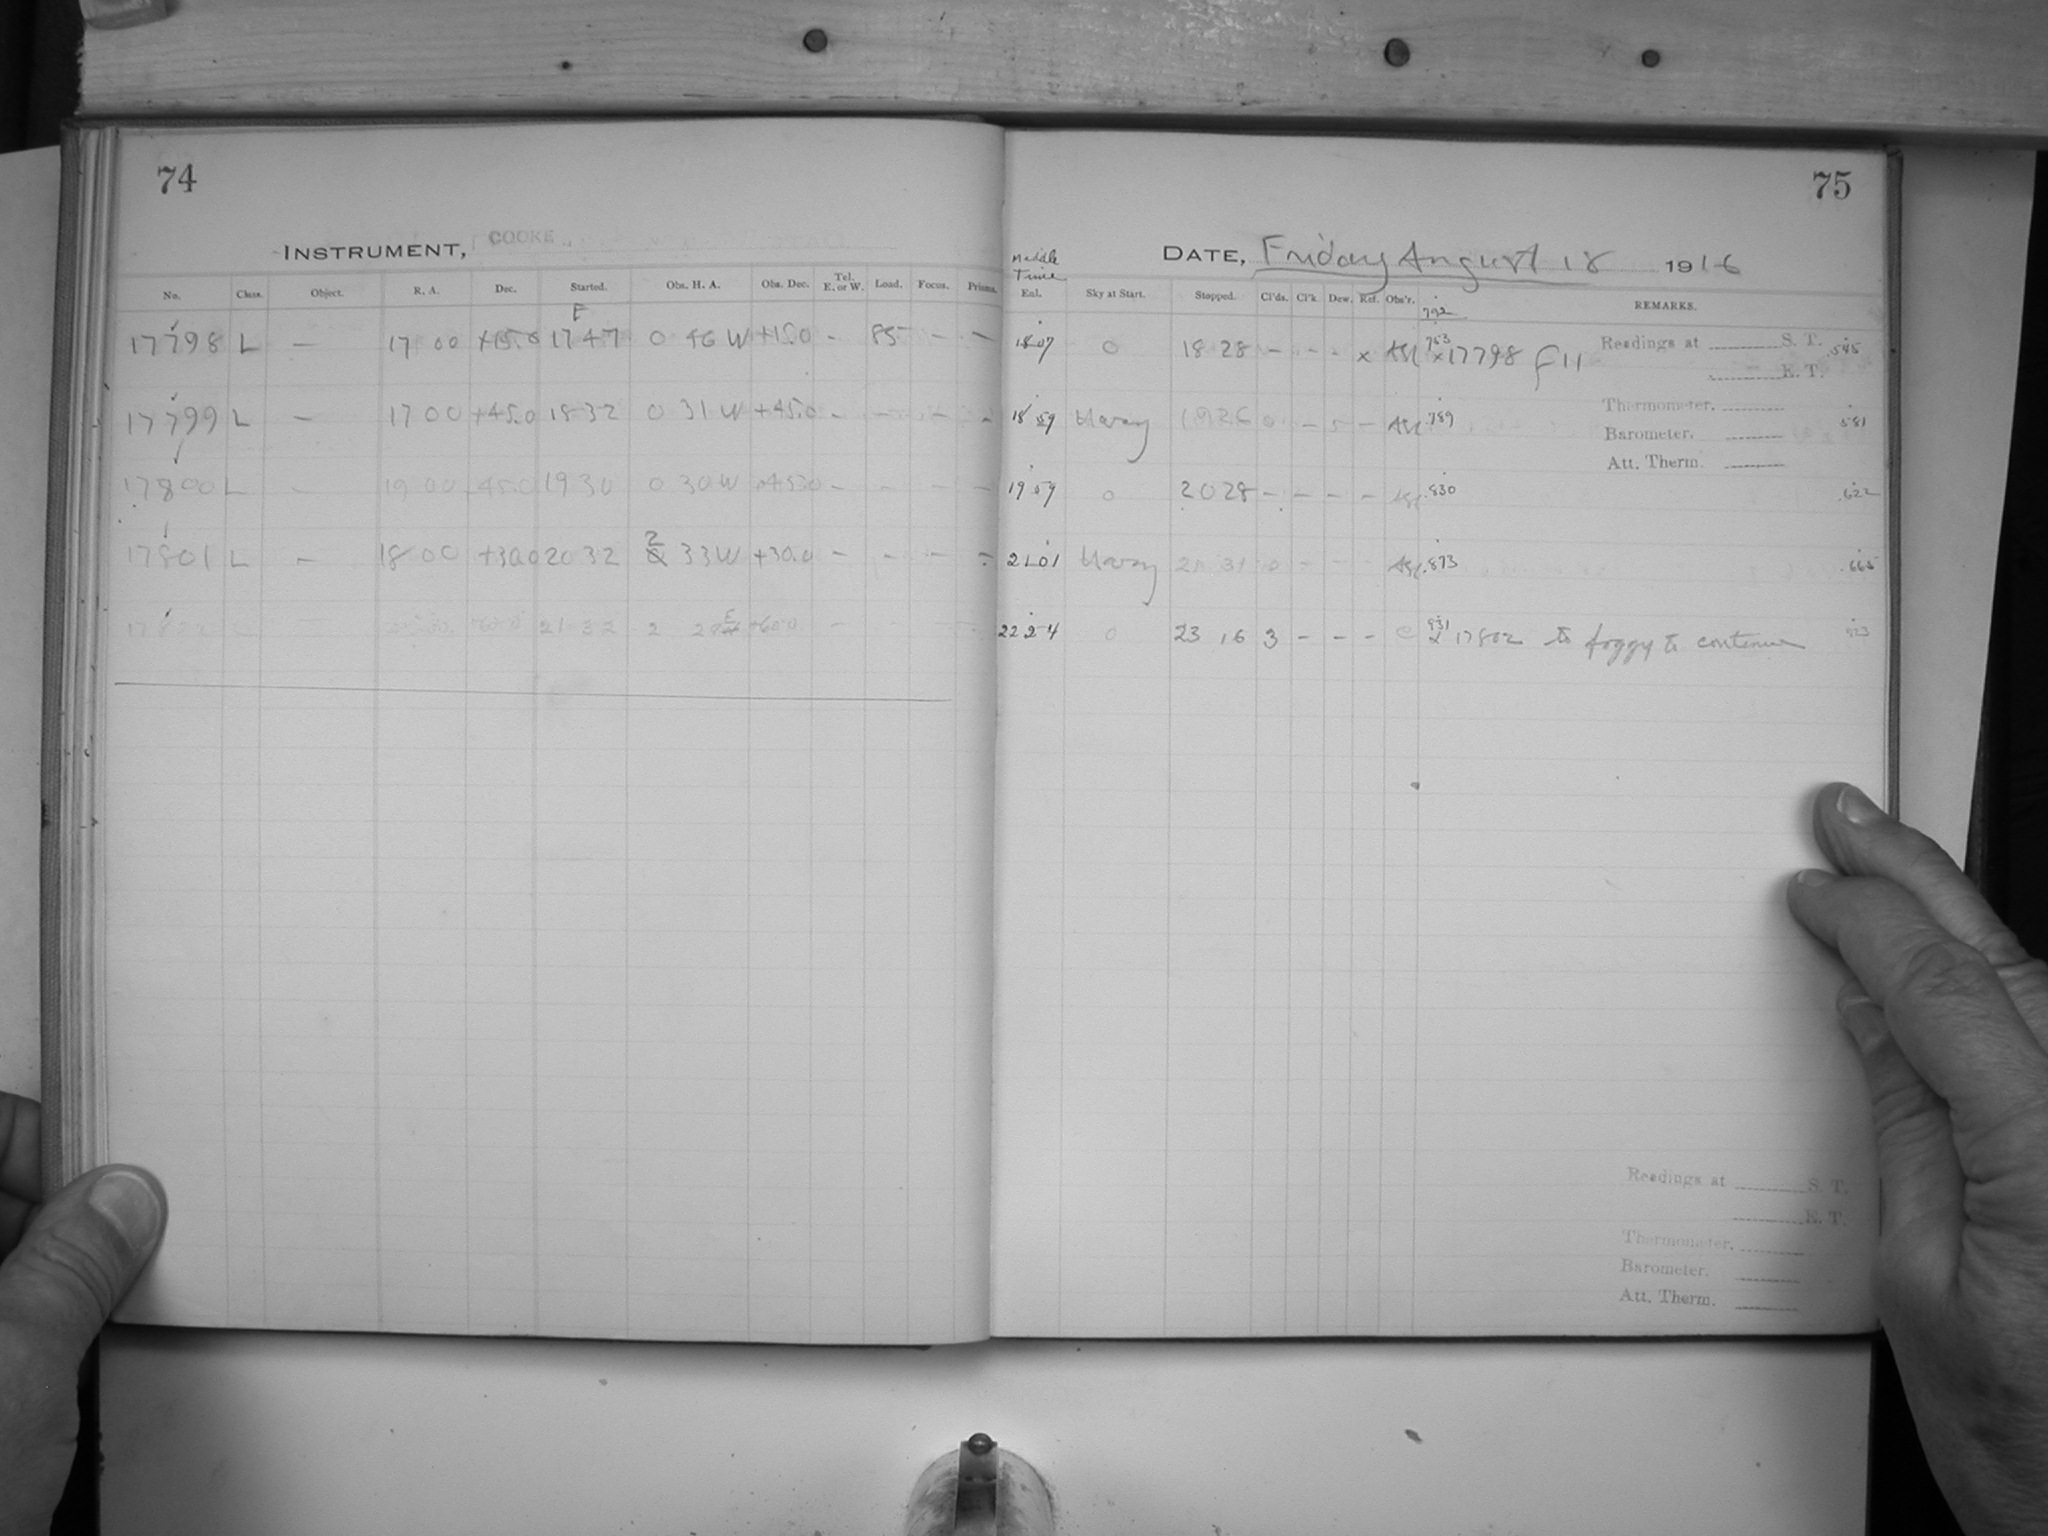 74
INSTRUMENT, COOKE
No. Class. Object. R. A. Dec. Started. Obs. H. A. Obs. Dec. Tel. E. or W. Load. Focus. Prisms.
E
17798 L — 17 00 +15.0 17 47 0 46 W +15.0 - 85 - -
17799 L — 17 00 +45.0 18 32 0 31 W +45.0 - - - -
17800 L - 19 00 45.0 19 30 0 30 W +45.0 - - - -
17801 L — 18 00 +30.0 20 32 2 33 W +30.0 - - - -
21 32 2 E +60.0 -
75
DATE, Friday August 18 1916
Middle Time
Enl. Sky at Start. Stopped. Cl'ds. Cl'k. Dew. Ref. Obs'r. REMARKS.
.792
18 07 0 18 28 - - - x .753 x 17798 F 11 .545
18 59 Hazy 19 26 0 - 5 - .789 .581
19 59 0 20 28 - - - - .830 .622
21 01 Hazy 21 31 0 - - - .873 .665
22 24 0 23 16 3 - - - C .931 x 17802 to foggy to continue
Readings at S. T.
E. T.
Thermometer.
Barometer.
Att. Therm.
Readings at S. T.
E. T.
Thermometer.
Barometer.
Att. Therm.